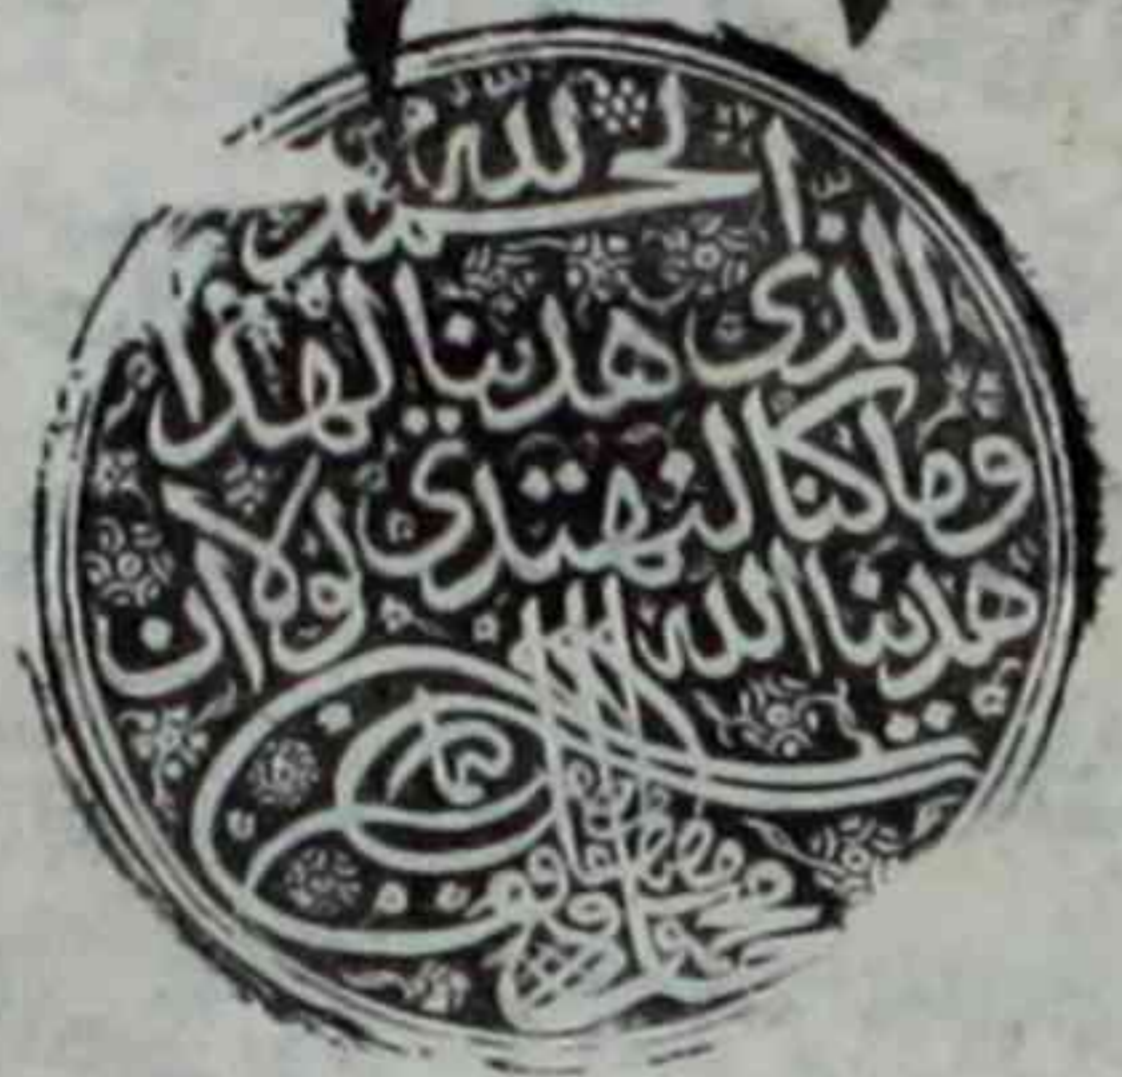 الحمد لله
الذى هدینا لهذا
وما كنا لنهتدي لولا ان
هدينا الله